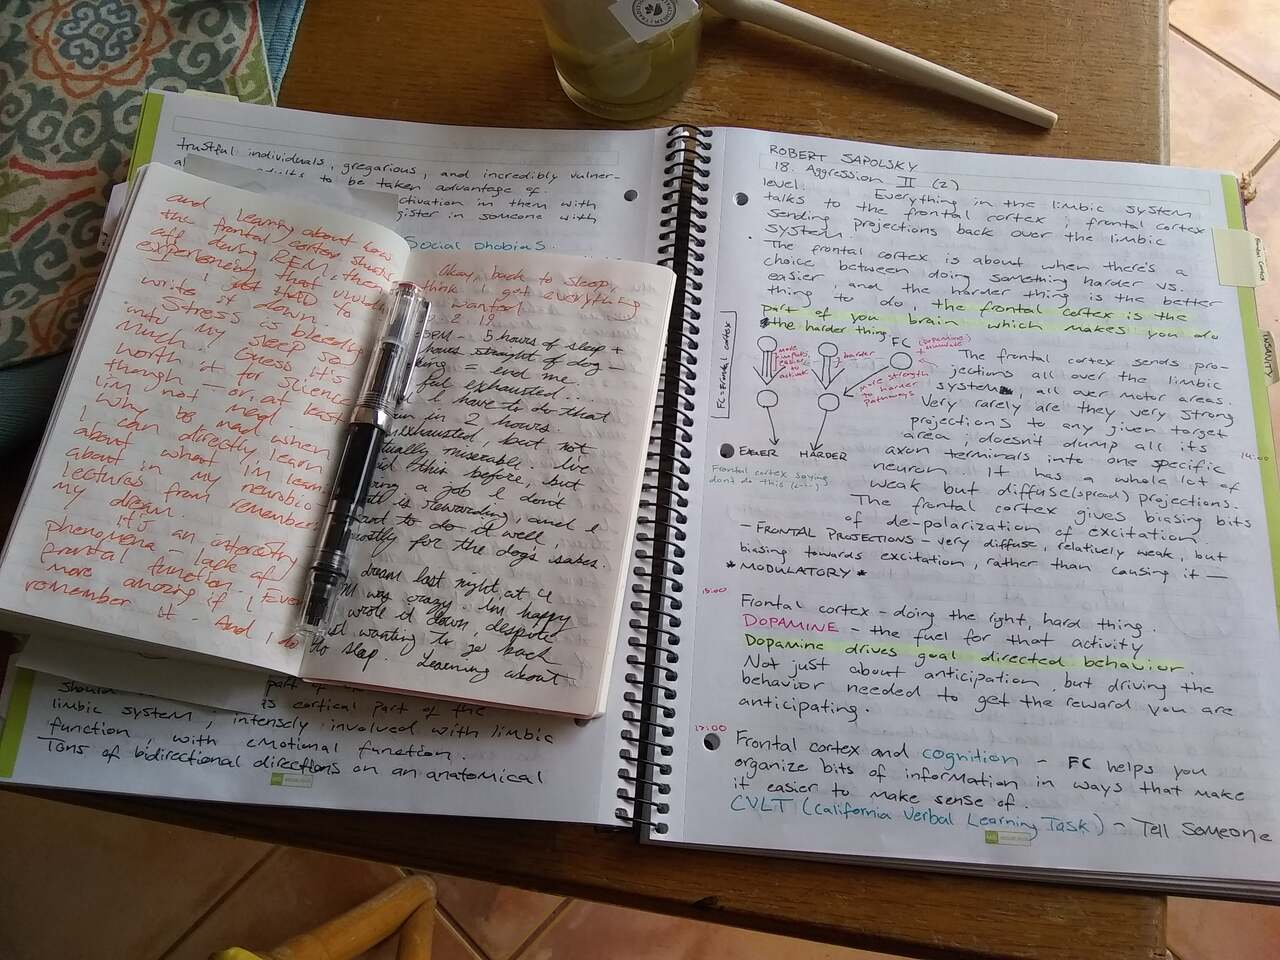 trustful individuals, gregarious, and incredibly vulner-
to be taken advantage of.
activation in them with
register in someone with
Social phobias.
should part of the
cortical part of the
limbic system, intensely involved with limbic
function, with emotional function.
Tons of bidirectional directions on an anatomical
and learning about how
the frontal cortex shuts
off during REM, then
experiencing that
I just HAD to
write it down.
Stress is bleeding
into my sleep so
much. Guess it's
worth it for science
though — or, at least
I'm not mad.
Why be mad when
I can directly learn
about what I'm learning
about in my neurobio
lectures from remembering
my dream.
it's an interesting
phenomena - lack of
frontal function. Even
more amazing if I
remember it. And I do
Okay, back to sleep,
think I got everything
I wanted.
PM - 5 hours of sleep +
hours straight of dog -
= end me.
exhausted...
I have to do that
in 2 hours.
exhausted, but not
actually miserable. I've
did this before, but
a job I don't
is stewarding, and I
want to do it well,
mostly for the dog's sakes.
dream last night at 4
was crazy. I'm happy
wrote it down, despite
just wanting to go back
to sleep. Learning about
ROBERT SAPOLSKY
18. Aggression II (2)
level. Everything in the limbic system
talks to the frontal cortex; frontal cortex
sending projections back over the limbic
system.
The frontal cortex is about when there's a
choice between doing something harder vs.
easier, and the harder thing is the better
thing to do, the frontal cortex is the
part of you brain which makes you do
the harder thing.
FC = Frontal cortex
more inputs, easier to activate
harder
FC
(Dopamine) stimulate
more strength to harder pathways
EASIER HARDER
Frontal cortex saying
don't do this
The frontal cortex sends pro-
jections all over the limbic
system, all over motor areas.
Very rarely are they very strong
projections to any given target
area; doesn't dump all its
axon terminals into one specific
neuron. It has a whole lot of
weak but diffuse (spread) projections.
The frontal cortex gives biasing bits
of de-polarization of excitation.
14:00
- FRONTAL PROJECTIONS - very diffuse, relatively weak, but
biasing towards excitation, rather than causing it —
* MODULATORY *
Frontal cortex - doing the right, hard thing.
DOPAMINE - the fuel for that activity
Dopamine drives goal directed behavior.
Not just about anticipation, but driving the
behavior needed to get the reward you are
anticipating.
17:00
Frontal cortex and cognition - FC helps you
organize bits of information in ways that make
it easier to make sense of.
CVLT (California Verbal Learning Task) - Tell someone
INSANITY